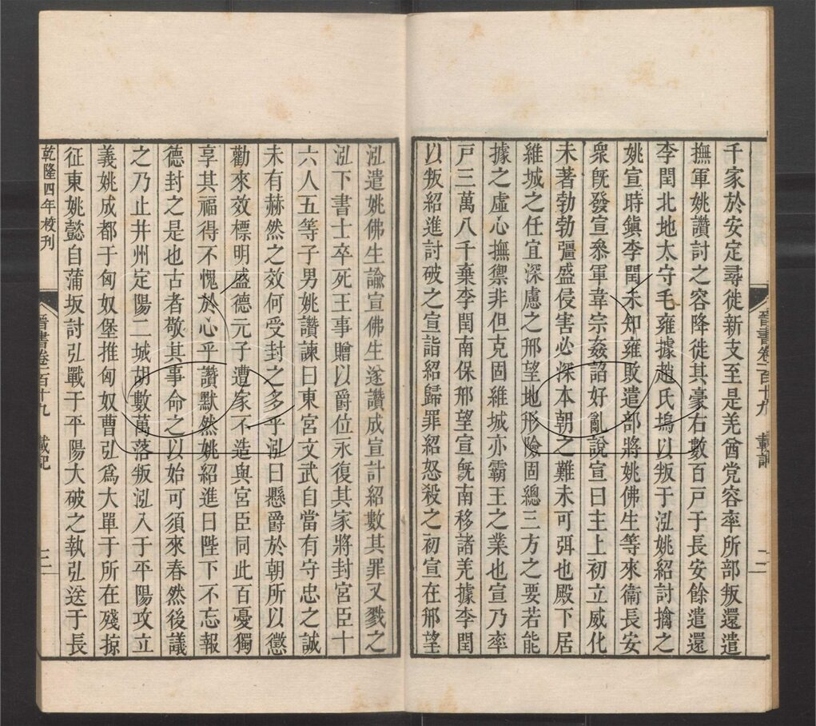 千家於安定尋徙新支至是羌酋党容率所部叛還遣
撫軍姚讚討之容降徙其豪右數百戸于長安餘遣還
李閏北地太守毛雍據趙氏塢以叛于泓姚紹討擒之
姚宣時鎮李閏未知雍敗遣部將姚佛生等來衞長安
衆旣發宣叅軍韋宗姦諂好亂說宣曰主上初立威化
未著勃勃彊盛侵害必深本朝之難未可弭也殿下居
維城之任宜深慮之邢望地形險固總三方之要若能
據之虛心撫禦非但克固維城亦霸王之業也宣乃率
戸三萬八千棄李閏南保邢望宣旣南移諸羌據李閏
以叛紹進討破之宣詣紹歸罪紹怒殺之初宣在邢望
晉書卷一百十九 載記 二
泓遣姚佛生諭宣佛生遂讚成宣計紹數其罪又戮之
泓下書士卒死王事贈以爵位永復其家將封宮臣十
六人五等子男姚讚諫曰東宮文武自當有守忠之誠
未有赫然之效何受封之多乎泓曰懸爵於朝所以懲
勸來效標明盛德元子遭家不造與宮臣同此百憂獨
享其福得不愧於心乎讚默然姚紹進曰陛下不忘報
德封之是也古者敬其事命之以始可須來春然後議
之乃止幷州定陽二城胡數萬落叛泓入于平陽攻立
義姚成都于匈奴堡推匈奴曹弘爲大單于所在殘掠
征東姚懿自蒲坂討弘戰于平陽大破之執弘送于長
乾隆四年校刊 晉書卷一百十九 載記 三